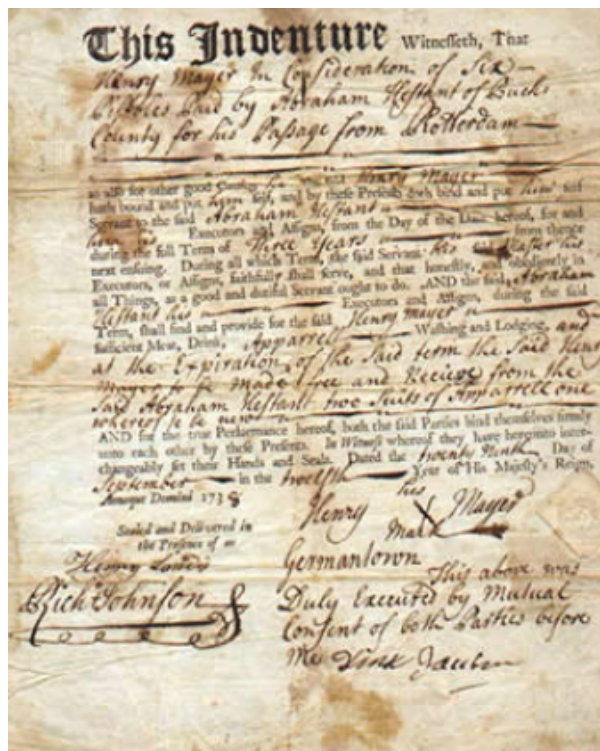 This Indenture Witnesseth, That
Henry Mayer In Consideration of Six
Pistoles Paid by Abraham Hestant of Bucks
County for his Passage from Rotterdam
as also for other good Causes he the said Henry Mayer
hath bound and put himself, and by these Presents doth bind and put him self
Servant to the said Abraham Hestant
his Executors and Assigns, from the Day of the Date hereof, for and
during the full Term of Three Years from thence
next ensuing. During all which Term, the said Servant his said Master his
Executors, or Assigns, faithfully shall serve, and that honestly, and obediently in
all Things, as a good and dutiful Servant ought to do. AND the said Abraham
Hestant his Executors and Assigns, during the said
Term, shall find and provide for the said Henry Mayer
sufficient Meat, Drink, Apparrell Washing and Lodging, and
at the Expiration of the Said term the Said Henry
Mayer to be made free and Recieve from the
Said Abraham Hestant two Suits of Apparrell one
whereof to be new
AND for the true Performance hereof, both the said Parties bind themselves firmly
unto each other by these Presents. In Witness whereof they have hereunto inter-
changeably set their Hands and Seals. Dated the twenty Ninth Day of
September in the twelfth Year of His Majesty's Reign,
Annoque Domini 1738
his
Henry X Mayer
Mark
Sealed and Delivered in
the Presence of us
Henry
Rich Johnson
Germantown
This above was
Duly Executed by Mutual
Consent of both Parties before
me